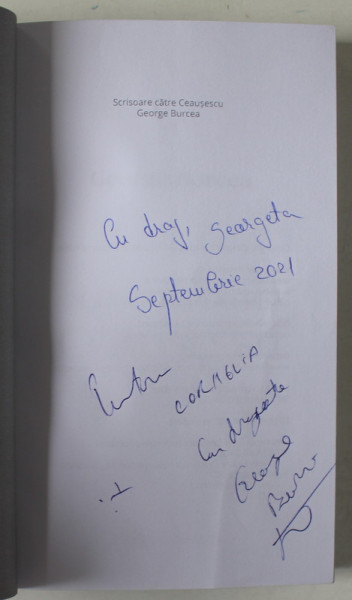 Scrisoare către Ceaușescu
George Burcea
Cu drag, Georgeta
Septembrie 2021
Pentru CORNELIA
Cu dragoste
George
Burcea